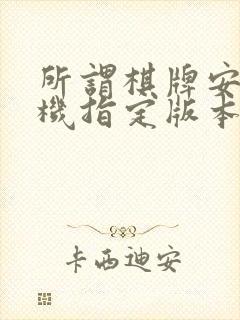 所謂棋牌安
機指定版本
卡西迪安